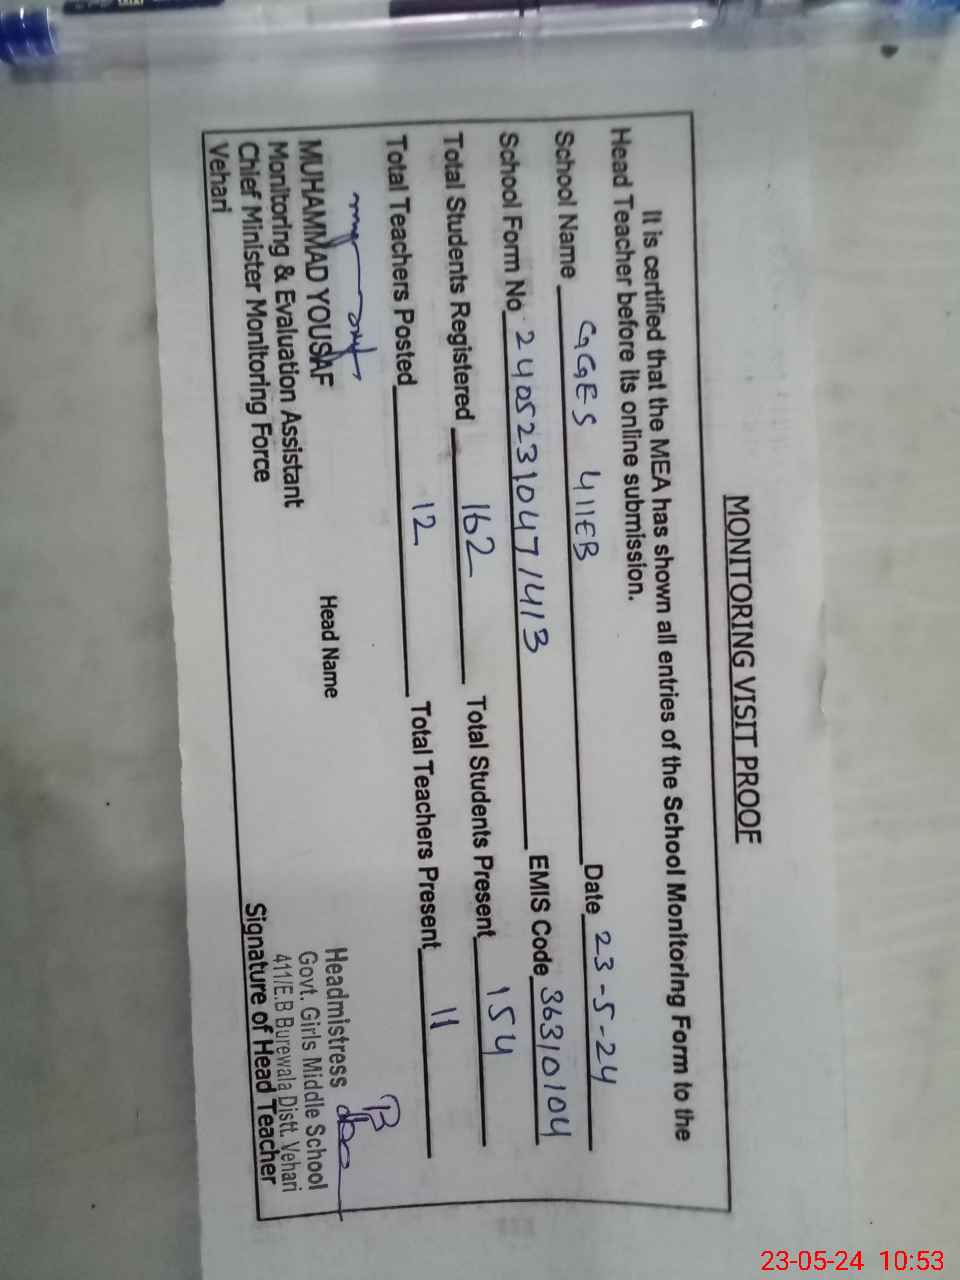 MONITORING VISIT PROOF
It is certified that the MEA has shown all entries of the School Monitoring Form to the
Head Teacher before its online submission.
School Name GGES 411EB Date 23-5-24
School Form No 24052310471413 EMIS Code 36310104
Total Students Registered 162 Total Students Present 154
Total Teachers Posted 12 Total Teachers Present 11
MUHAMMAD YOUSAF
Monitoring & Evaluation Assistant
Chief Minister Monitoring Force
Vehari
Head Name
Headmistress
Govt. Girls Middle School
411/E.B Burewala Distt. Vehari
Signature of Head Teacher
23-05-24 10:53